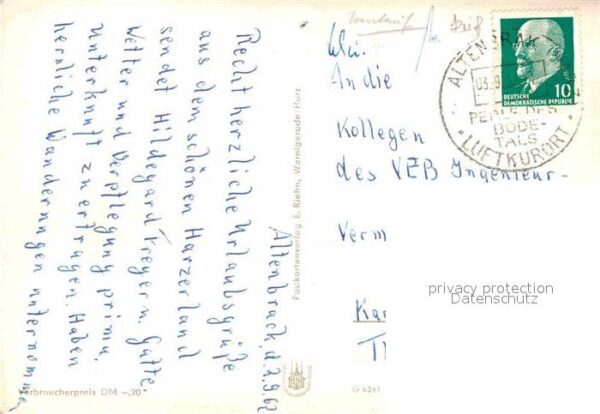 Altenbrack, d. 2.9.62
Recht herzliche Urlaubsgrüße
aus dem schönen Harzerland
sendet Hildegard Freyer u. Gatte.
Wetter und Verpflegung prima.
Unterkunft zu ertragen. Haben
herrliche Wanderungen unternommen
Verbraucherpreis DM -,20
Postkartenverlag E. Riehn, Wernigerode/Harz
An die
Kollegen
des VEB Ingenieur-
Verm
Kar
ALTENBRAK
03.9
PERLE DES
BODE-
TALS
LUFTKURORT
10
DEUTSCHE
DEMOKRATISCHE REPUBLIK
privacy protection
Datenschutz